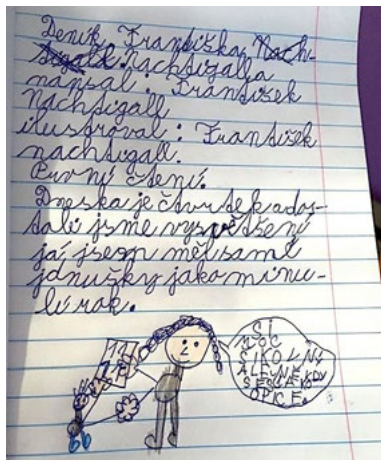 Deník Františka Nach-
tigall Nachtigalla
napsal : František
Nachtigall
ilustroval : František
nachtigall.
Prvni čtení.
Dneska je čtvrtek a dos-
tali jsme vysvětšení
já jsem měl samí
jdnušky jako minu-
lí rok.
11
SI
MOC
ŠIKOVNÝ
ALE NĚKDY
SES JAKO
OPICE.